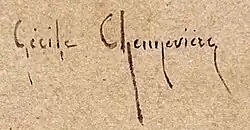 Cécile Chennevière